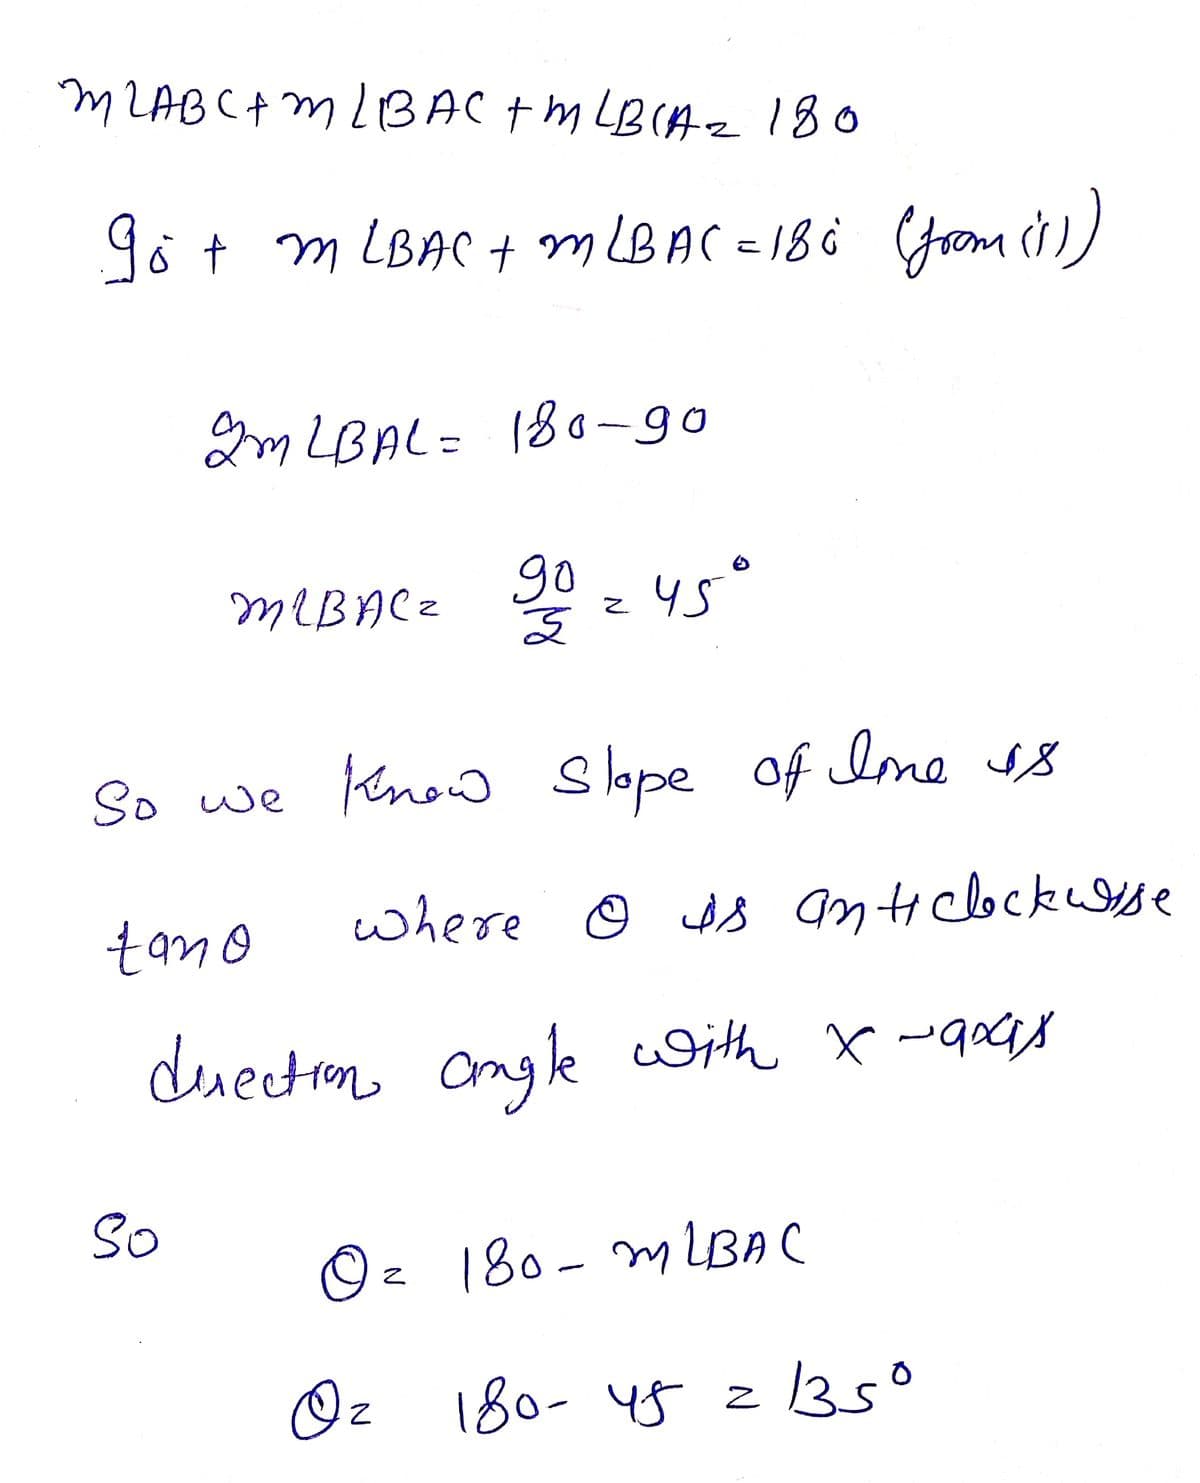 m∠ABC + m∠BAC + m∠BCA = 180
90° + m∠BAC + m∠BAC = 180° (from (i))
2m∠BAC = 180-90
m∠BAC = 90/2 = 45°
So we know slope of line is
tanθ where θ is anticlockwise
direction angle with x-axis
So θ = 180 - m∠BAC
θ = 180 - 45 = 135°